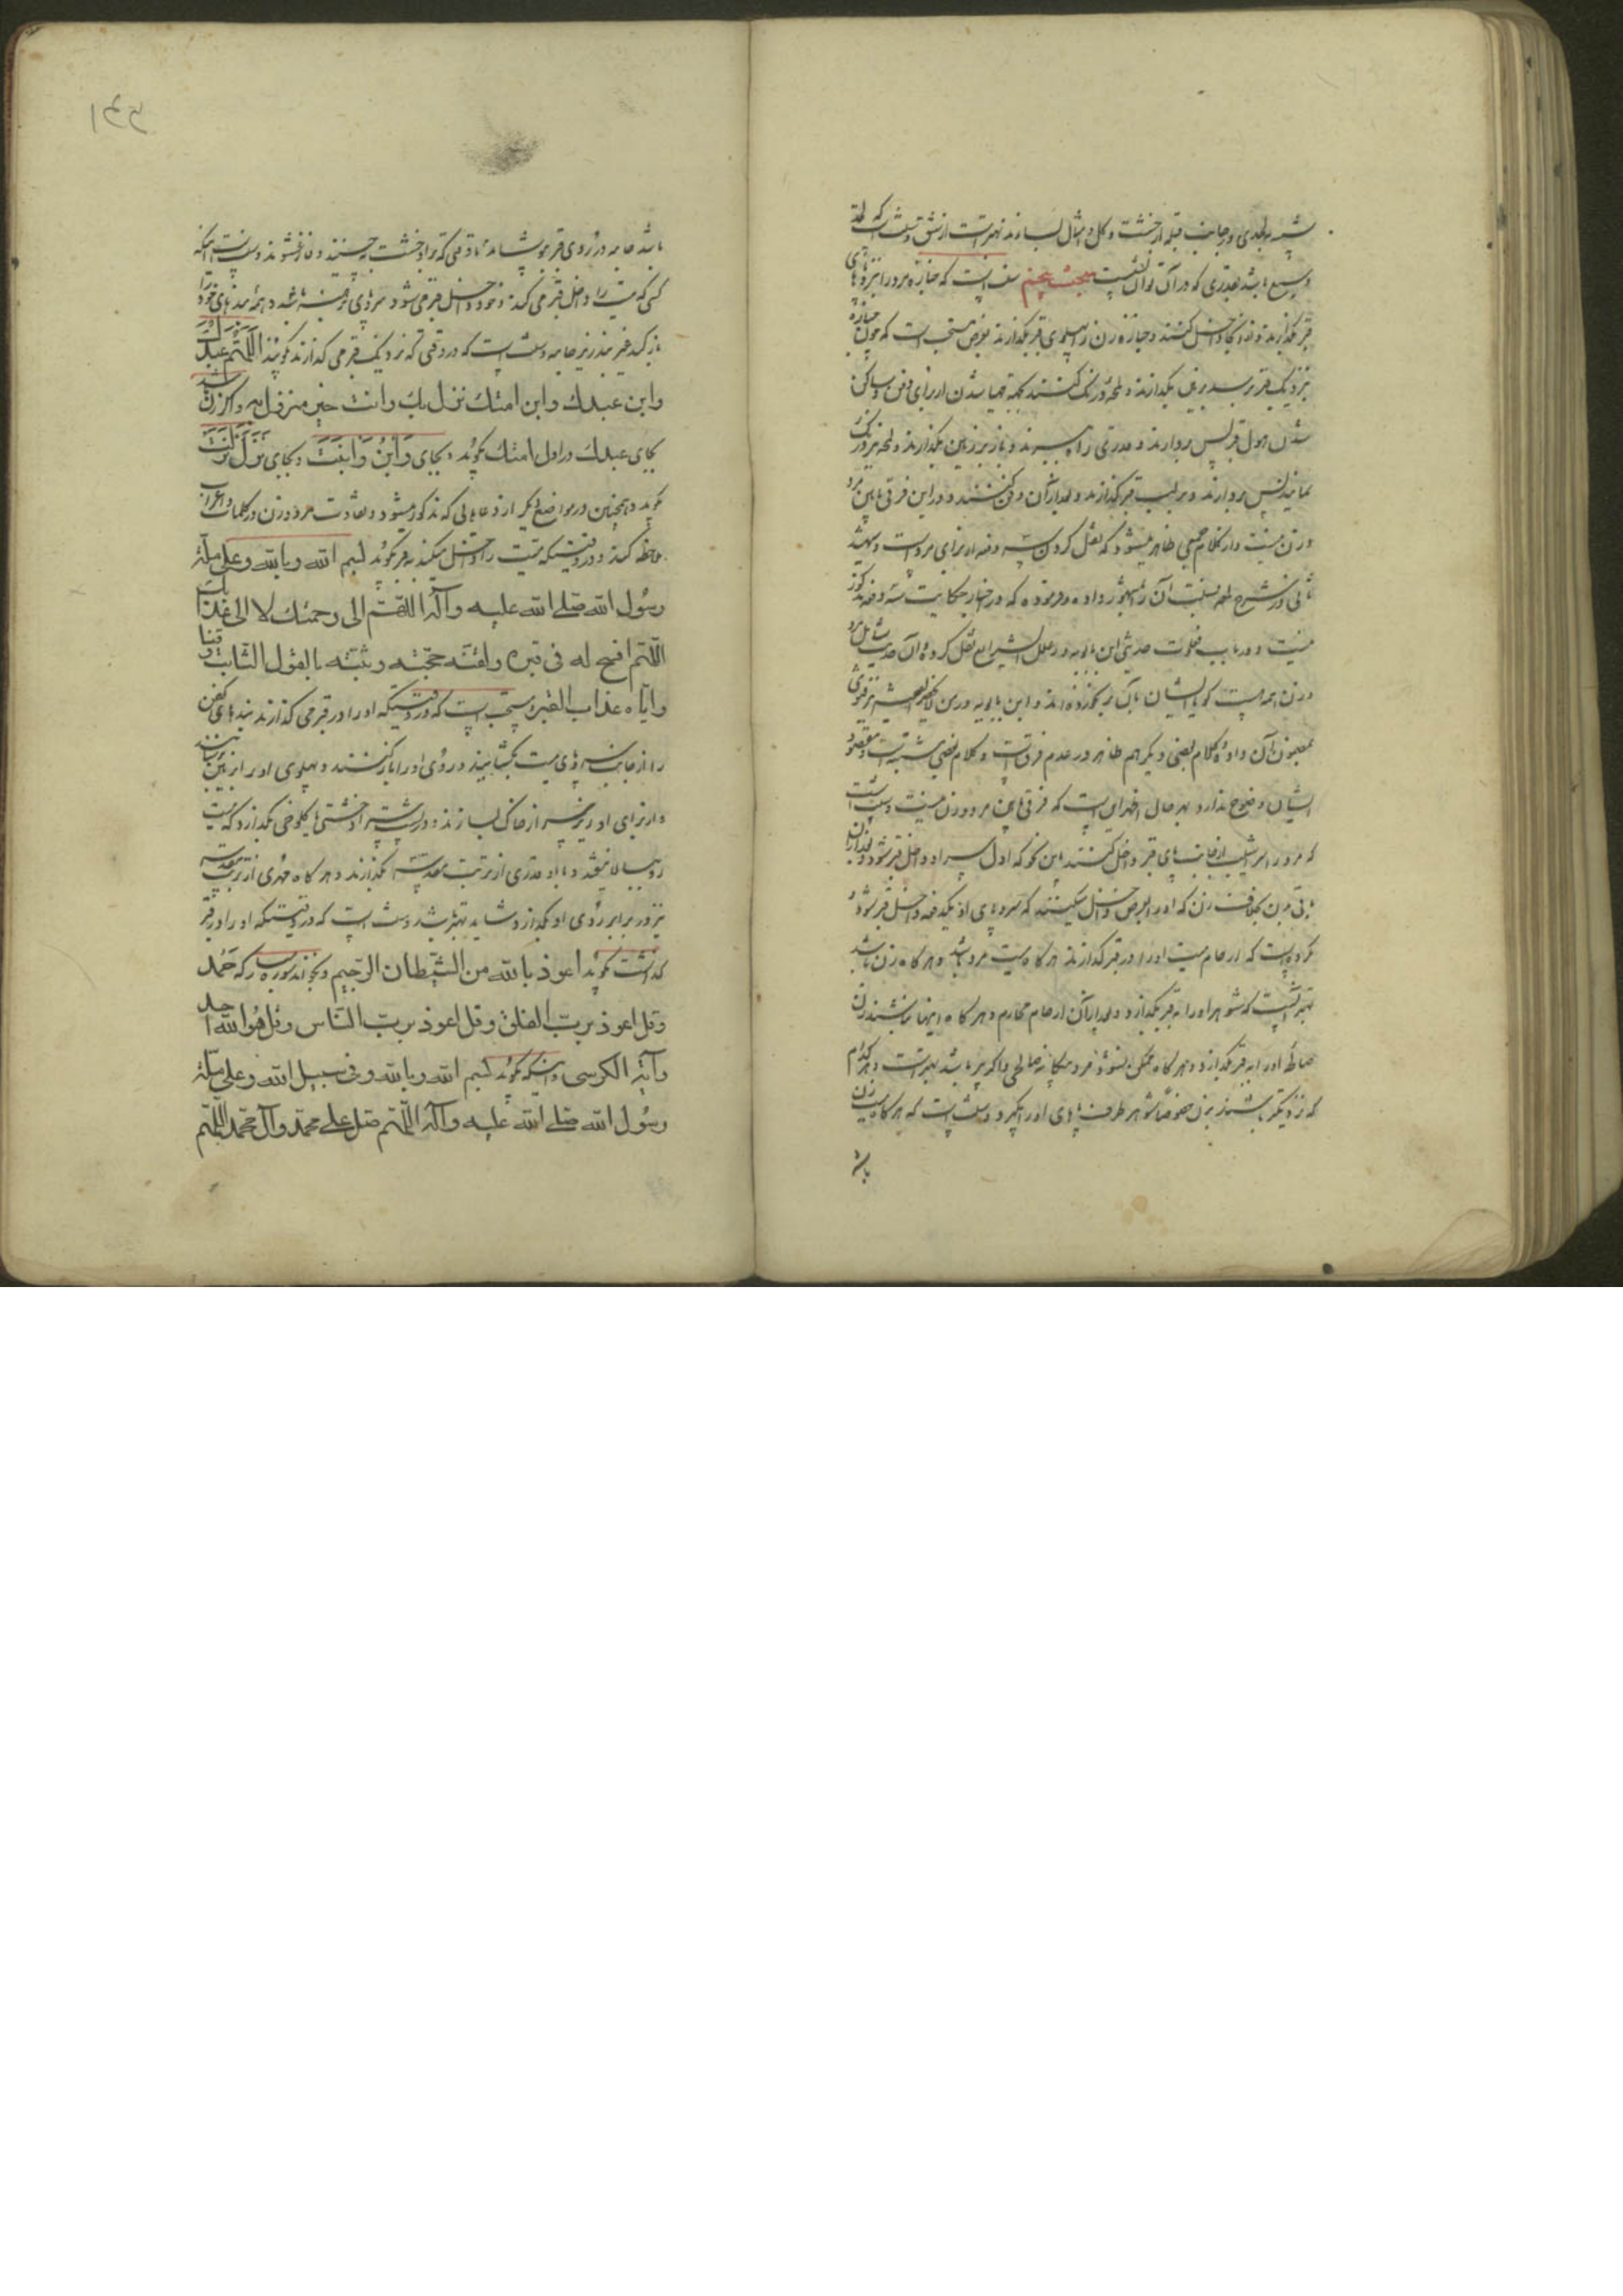 شبیه بلحدی و جانب قبله از خشت و گل و امثال بسازند بهتر است از شق و سنت است که لحد
وسیع باشد بقدری که در آن توان نشست مبحث پنجم سنت است که جنازه مرد را نزد پای
قبر بگذارند و از آنجا داخل کنند و جنازه زن را پهلوی قبر بگذارند بعرض مستحب است که چون جنازه
نزدیک قبر برسد بر زمین بگذارند و لحظه درنگ کنند بجهة مهیا شدن او برای دفن و ساکن
شدن هول قبر پس بردارند و قدری راه ببرند و باز بر زمین بگذارند و لحظه درنگ
نمایند پس بردارند و بر لب قبر گذارند و بعد از آن دفن کنند و در این فرقی مابین مرد
و زن نیست و از کلام جمعی ظاهر میشود که نقل کردن سه دفعه از برای مرد است و شهید
ثانی در شرح لمعه نسبت آن را بمشهور داده و فرموده که در اخبار حکایت سه دفعه مذکور
نیست و در باب تفاوت حدیثی ابن بابویه در علل الشرایع نقل کرده و آن حدیث شامل مرد
و زن همه هست گویا ایشان بآن بر نخورده‌اند و ابن بابویه در من لایحضره الفقیه نیز فتوی
بمضمون آن داده و کلام بعضی دیگر هم ظاهر در عدم فرق است و کلام بعضی مشتبه است و مقصود
ایشان وضوح ندارد بهر حال اظهر این است که فرقی مابین مرد و زن نیست و سنت است
که مرد را سراشیب از جانب پای قبر داخل کنند باین نحو که اول سر او داخل قبر شود و بعد از آن
باقی بدن بخلاف زن که او را بعرض داخل میکنند که سر و پای او یکدفعه داخل قبر شود و
مکروه است که ارحام میت او را در قبر گذارند هر گاه میت مرد باشد و هر گاه زن باشد
بهتر آنست که شوهر او را به قبر بگذارد و بعد از آن ارحام محارم و هر گاه اینها نباشند زن
صالحه او را به قبر بگذارد و هر گاه ممکن نشود مرد بیگانه صالحی و اگر پیر باشد بهتر است و هر کدام
که نزدیکتر باشند بزن خصوصا شوهر طرف پاهای او را بگیرد و سنت است که هر گاه میت زن
باشد
باشد جامه در روی قبر بپوشانند تا وقتی که بر او خشت چینند و فارغ شوند و سنت است اینکه
کسی که میت را داخل قبر می کند و خود داخل قبر می شود سر و پای برهنه باشد و همه بندهای خود را
باز کند غیر بند زیر جامه و سنت است که در وقتی که نزدیک قبر می گذارند گویند اللهم عبدک
وابن عبدك وابن امتك نزل بك وانت خير منزول به و اگر زن باشد
بجای عبدك در اول امتك بگوید و بجای وَابنُ وَابنَت و بجای نَزَلَ نَزَلَت
گوید و همچنین در مواضع دیگر از دعاهائی که مذکور میشود و تفاوت مرد و زن در کلمات و اعراب
ملاحظه کند و در وقتیکه میت را داخل میکند به قبر بگوید بسم الله وبالله وعلی ملة
رسول الله صلى الله عليه وآله اللهم الى رحمتك لا الى عذابك
اللهم افسح له فى قبره ولقنه حجته وثبته بالقول الثابت وقنا
واياه عذاب القبر و مستحب است که در وقتیکه او را در قبر می گذارند بندهای کفن
را از جانب سر و پای میت بگشایند و روی او را باز کنند و پهلوی او را بر زمین برسانند
و از برای او زیر سر از خاک بسازند و در پشت او خشتی یا کلوخی بگذارد که میت
رو ببالا نیفتد و با او قدری از تربت مقدسه بگذارند و هر گاه مهری از تربت مقدسه
نیز در برابر روی او بگذارد شاید بهتر باشد و سنت است که در وقتیکه او را در قبر
گذاشت بگوید اعوذ بالله من الشيطان الرجيم و بخواند سوره مبارکه حَمد
وقل اعوذ برب الفلق وقل اعوذ برب الناس وقل هو الله احد
وآية الكرسى و اینکه بگوید بسم الله وبالله وفى سبيل الله وعلى ملة
رسول الله صلى الله عليه وآله اللهم صل على محمد وآل محمد اللهم